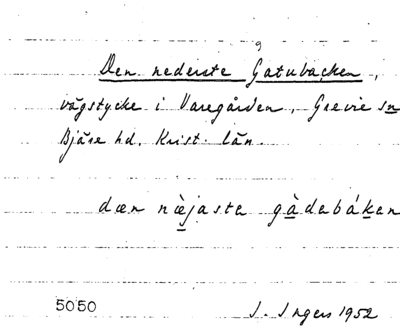 Den nederste Gatubacken,
vägstycke i Varegården, Grevie sn
Bjäre hd. Krist. län.
dæn næ̀jasta gàdabákan
5050
I. Ingers 1952